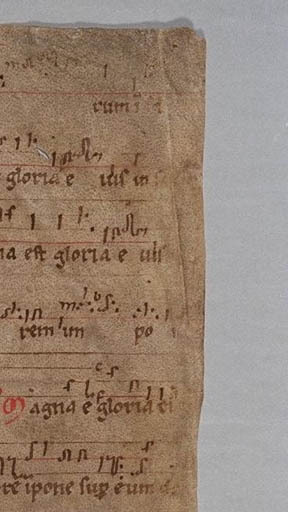 rum
gloria e ius in
na est gloria e ius
rem im po
Magna e gloria ei
re ipone sup eum